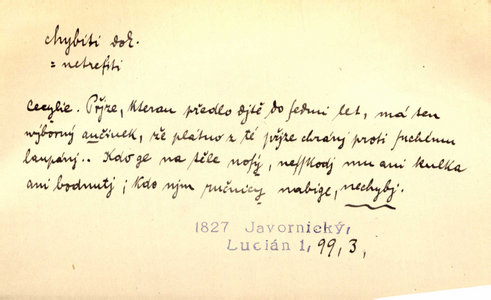 chybiti dok.
= netrefiti
Cecylie. Přjze, kterau předlo djtě do sedmi let, má ten
výborný aučinek, že plátno z té přjze chránj proti suchému
laupánj.. Kdo ge na těle nosý, nesskodj mu ani kulka
ani bodnutj; kdo njm ručnicy nabige, nechybj.
1827 Javornický,
Lucián 1, 99, 3,